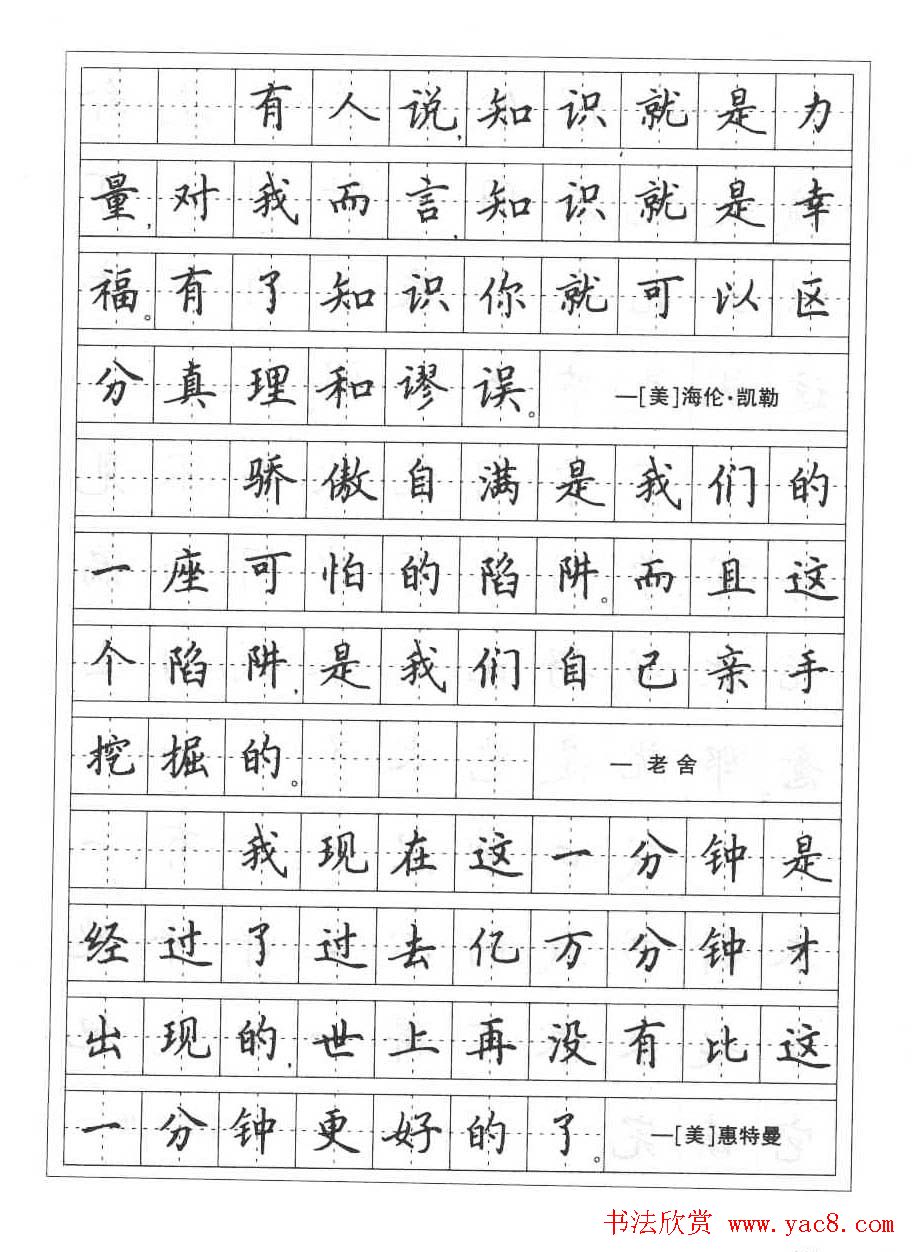 有人说,知识就是力
量,对我而言,知识就是幸
福。有了知识你就可以区
分真理和谬误。 —[美]海伦·凯勒
骄傲自满是我们的
一座可怕的陷阱。而且这
个陷阱,是我们自己亲手
挖掘的。 — 老舍
我现在这一分钟是
经过了过去亿万分钟才
出现的,世上再没有比这
一分钟更好的了。 —[美]惠特曼
书法欣赏 www.yac8.com